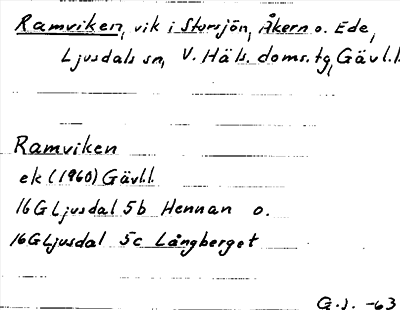 Ramviken, vik i Storsjön, Åkern o. Ede,
Ljusdals sn, V. Häls. doms.tg, Gävl.l.
Ramviken
ek (1960) Gävl.l.
16G Ljusdal 5b Hennan o.
16G Ljusdal 5c Långberget
G.J. -63